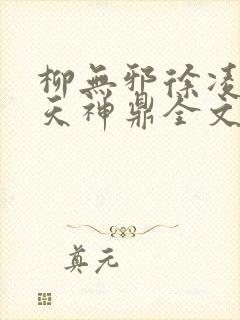 柳無邪徐凌
天神鼎全文
真元